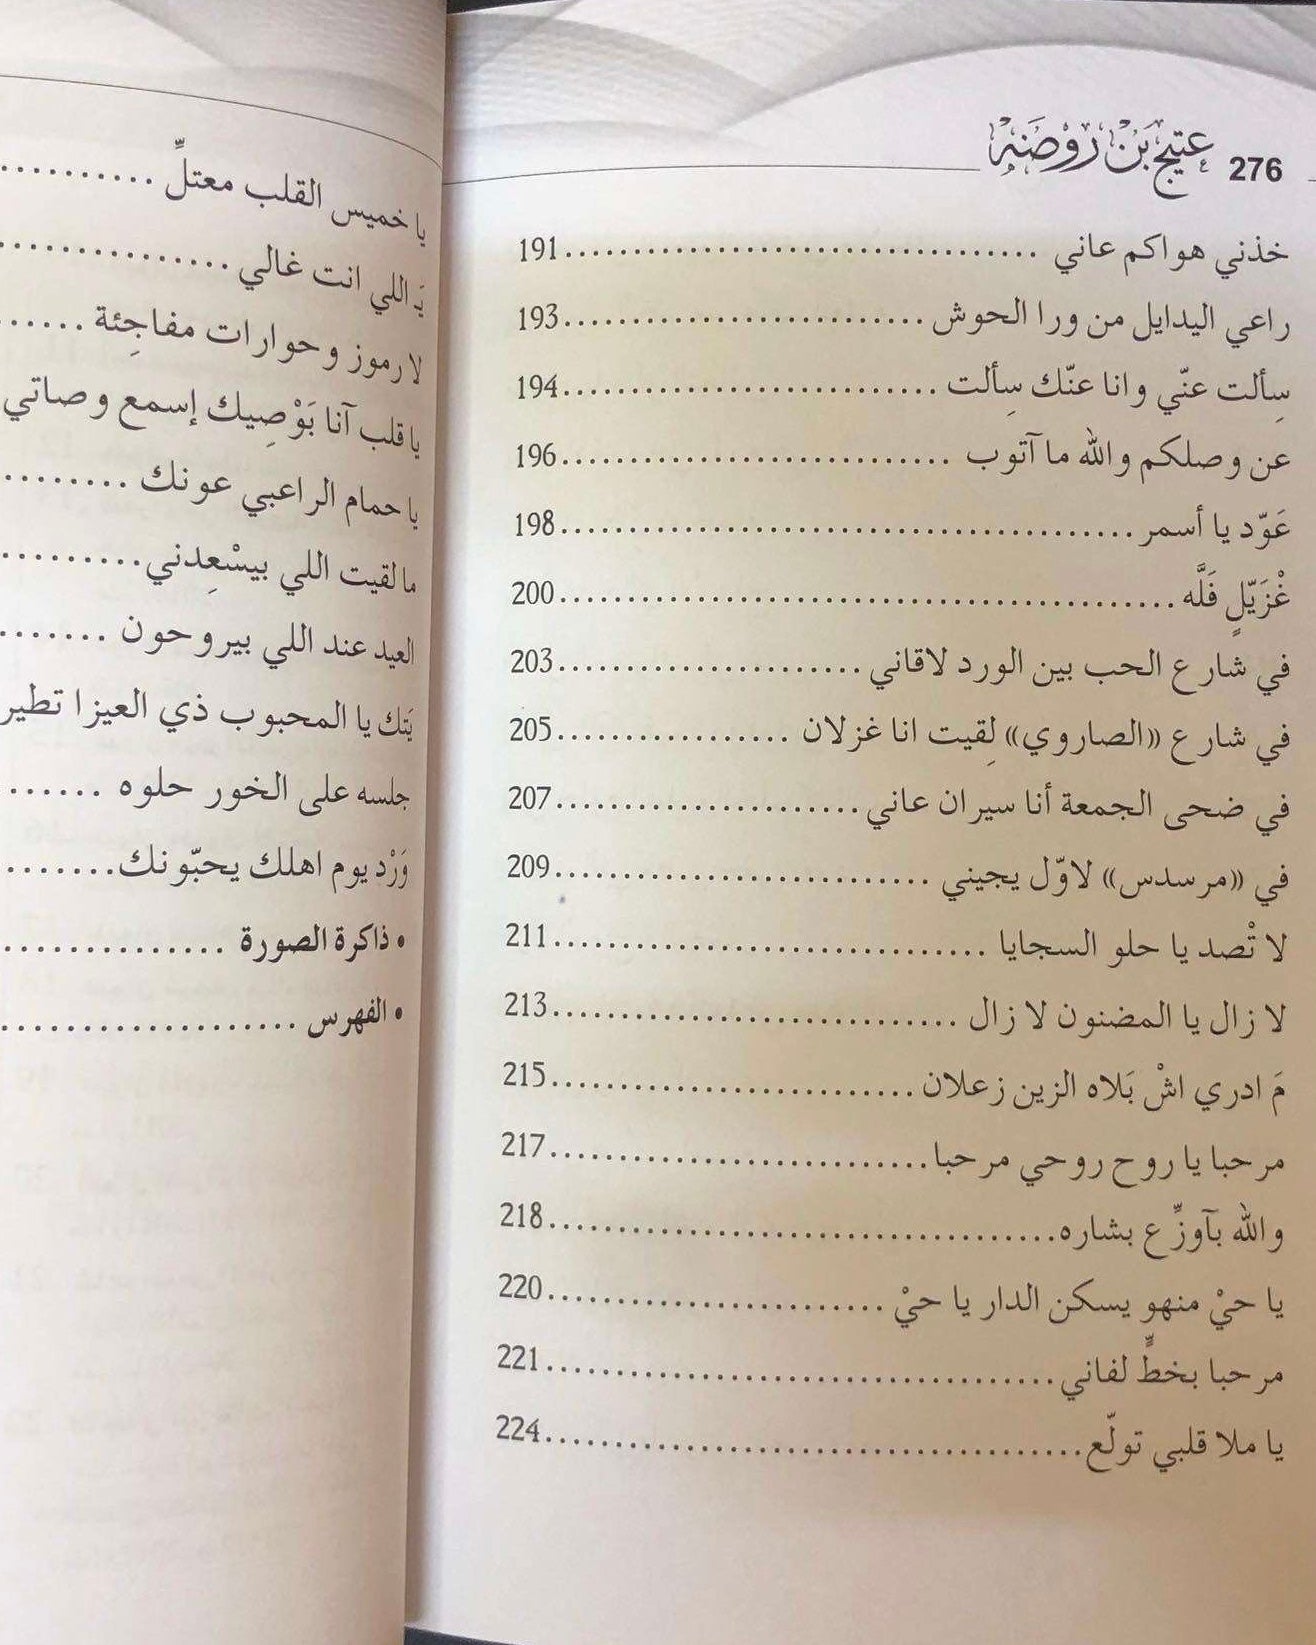 276 عتيج بن روضه
خذني هواكم عاني ................................... 191
راعي اليدايل من ورا الحوش ........................... 193
سِألت عنّي وانا عنّك سِألت ............................ 194
عن وصلكم والله ما آتوب ............................. 196
عَوّد يا أسمر .......................................... 198
غْزَيّلٍ فَلَّه ............................................. 200
في شارع الحب بين الورد لاقاني ....................... 203
في شارع «الصاروي» لِقيت انا غزلان ................. 205
في ضحى الجمعة أنا سيران عاني ....................... 207
في «مرسدس» لاوّل يجيني ............................ 209
لا تْصد يا حلو السجايا ................................ 211
لا زال يا المضنون لا زال .............................. 213
مَ ادري اشْ بَلاه الزين زعلان .......................... 215
مرحبا يا روح روحي مرحبا ............................ 217
والله بآوزِّع بشاره ..................................... 218
يا حيْ منهو يسكن الدار يا حيْ ......................... 220
مرحبا بخطٍّ لفاني ...................................... 221
يا ملا قلبي تولّع ........................................ 224
يا خميس القلب معتلِّ ...........
يَـ اللي انت غالي ...............
لا رموز وحوارات مفاجِئة ......
يا قلب آنا بَوْصِيك إسمع وصاتي
يا حمام الراعبي عونك .........
ما لقيت اللي بيسْعِدني ..........
العيد عند اللي بيروحون ........
يا المحبوب ذي العيزا تطير
جلسه على الخور حلوه .......
وَرْد يوم اهلك يحبّونك ........
• ذاكرة الصورة ...............
• الفهرس .....................